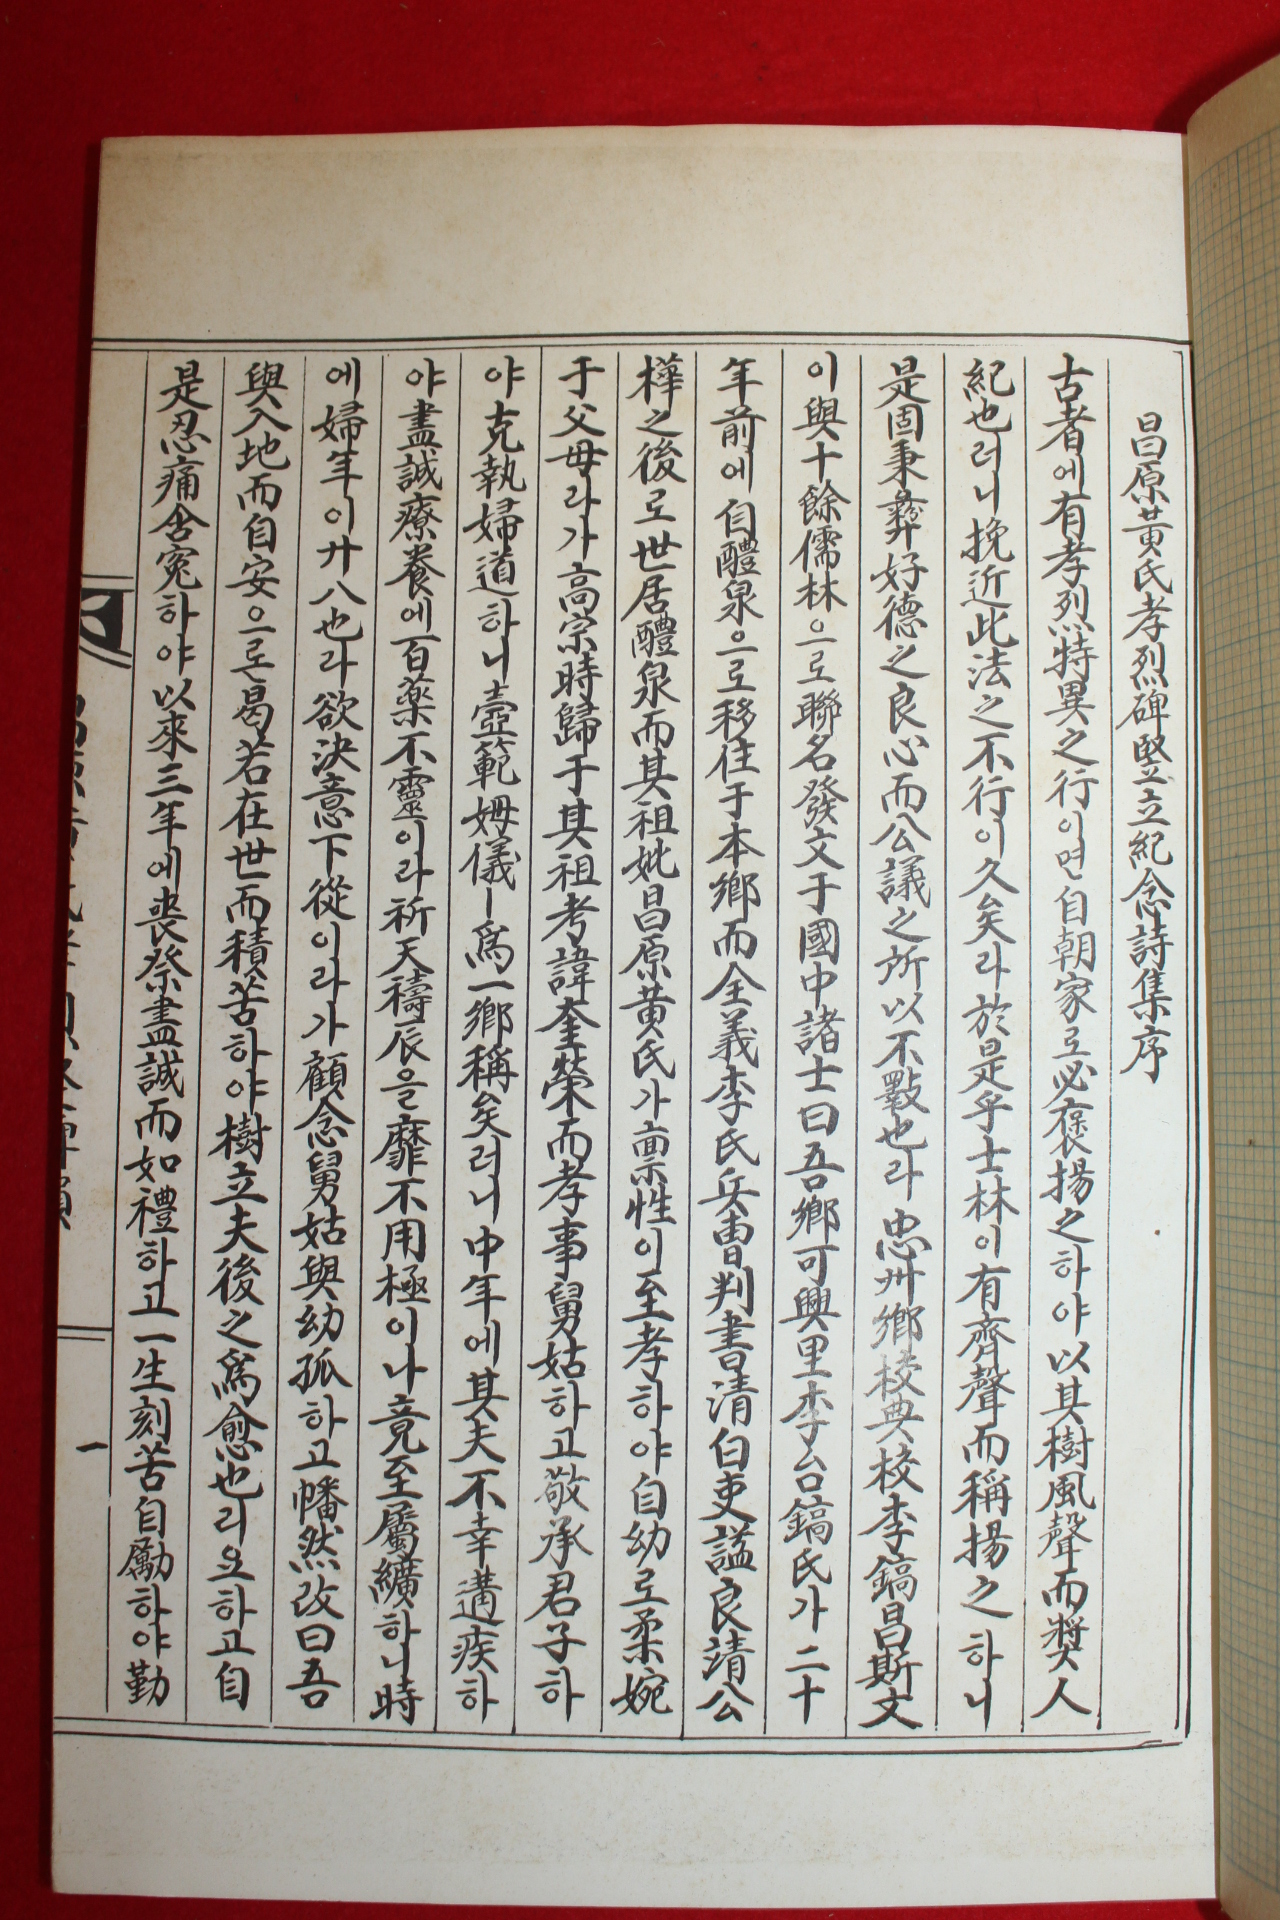 昌原黃氏孝烈碑竪立紀念詩集序
古者에有孝烈特異之行이면自朝家로必褒揚之하야以其樹風聲而奬人
紀也러니挽近此法之不行이久矣라於是乎士林이有齊聲而稱揚之하니
是固秉彛好德之良心而公議之所以不斁也라忠州鄕校典校李鎬昌斯文
이與十餘儒林으로聯名發文于國中諸士曰吾鄕可興里李台鎬氏가二十
年前에自醴泉으로移住于本鄕而全義李氏兵曹判書淸白吏諡良靖公
樺之後로世居醴泉而其祖妣昌原黃氏가禀性이至孝하야自幼로柔婉
于父母라가高宗時歸于其祖考諱奎榮而孝事舅姑하고敬承君子하
야克執婦道하니壼範姆儀ㅣ爲一鄕稱矣러니中年에其夫不幸遘疾하
야盡誠療養에百藥不靈이라祈天禱辰을靡不用極이나竟至屬纊하니時
에婦年이廿八也라欲決意下從이라가顧念舅姑與幼孤하고幡然改曰吾
與入地而自安으론曷若在世而積苦하야樹立夫後之爲愈也리오하고自
是忍痛含寃하야以來三年에喪祭盡誠而如禮하고一生刻苦自勵하야勤
一